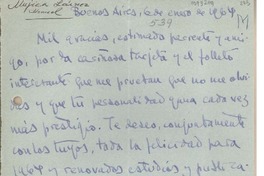 Mujica Láinez
Manuel
Buenos Aires, 6 de enero de 1964
539
[M]
Mil gracias, estimado pariente y ami-
go, por la cariñosa tarjeta y el folleto
interesante que me prueban que no me olvi-
das y que tu personalidad gana cada vez
más prestigio. Te deseo, conjuntamente
con los tuyos, toda la felicidad para
1964 y renovados estudios y publica-